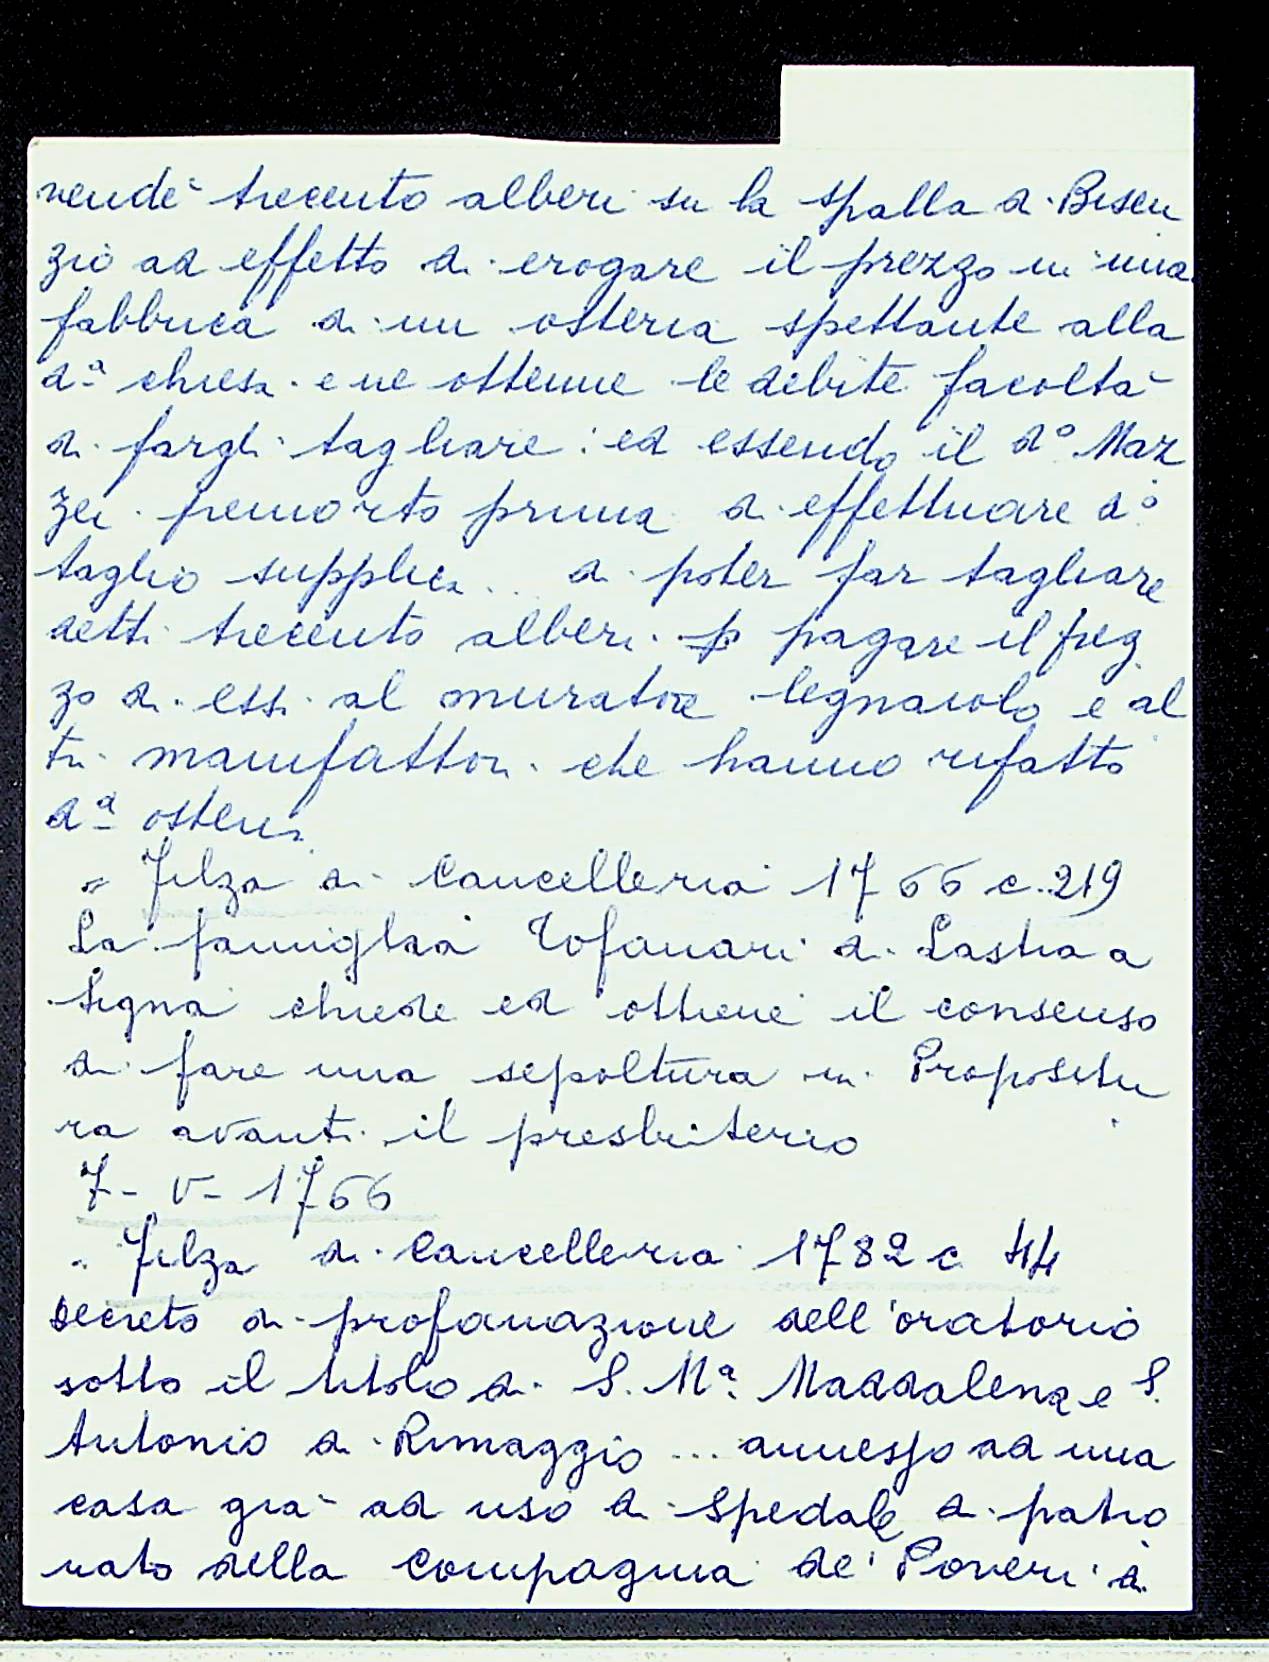 vendé trecento alberi su la spalla di Bisen
zio ad effetto di erogare il prezzo in una
fabbrica di un osteria spettante alla
d.ª chiesa e ne ottenne le debite facoltà
di fargli tagliare: ed essendo il d.º Maz
zei premorto prima di effettuare d.º
taglio supplica .. di poter far tagliare
detti trecento alberi p pagare il prez
zo di essi al muratore legnaiolo e al
tri manifattori che hanno rifatto
d.ª osteria
" Filza di Cancelleria 1766 c. 219
La famiglia Tofanari di Lastra a
Signa chiede ed ottiene il consenso
di fare una sepoltura in Propositu
ra avanti il presbiterio
7 - V - 1766
" Filza di Cancelleria 1782 c. 44
Decreto di profanazione dell'oratorio
sotto il titolo di S. Mª. Maddalena e S.
Antonio di Rimaggio ... annesso ad una
casa già ad uso di Spedale di patro
nato della Compagnia de' Poveri di